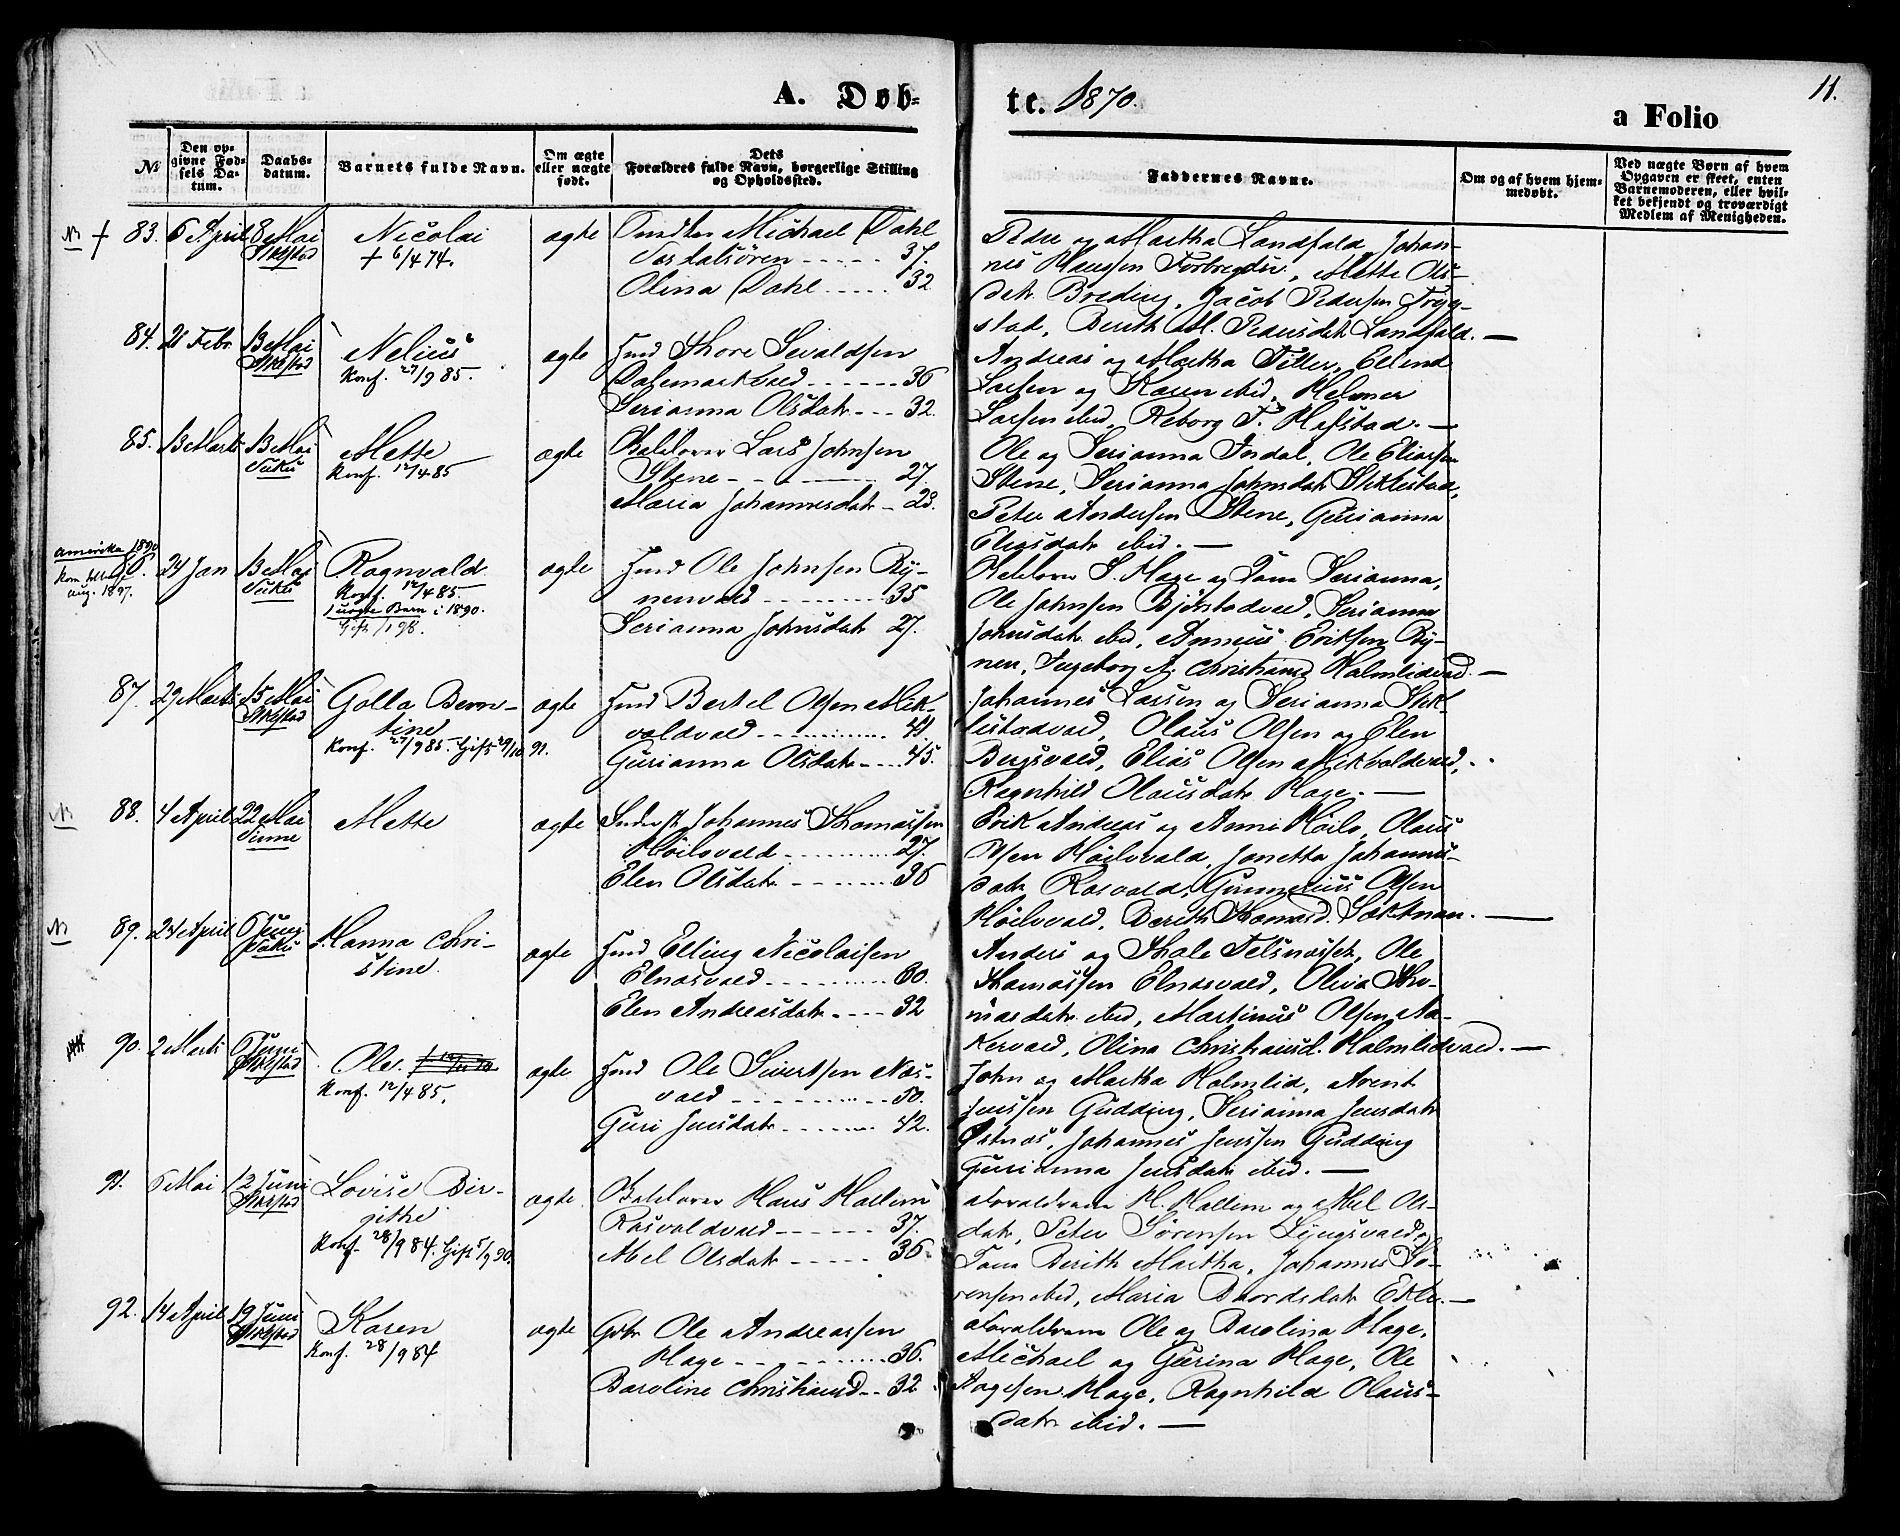 A. Døb-
te. 1870.
11.
a Folio
№
Den op-
givne Fød-
sels Da-
tum.
Daabs-
datum.
Barnets fulde Navn.
Om ægte
eller uægte
født.
Dets
Forældres fulde Navn, borgerlige Stilling
og Opholdssted.
Faddernes Navne.
Om og af hvem hjem-
medøbt.
Ved uægte Børn af hvem
Opgaven er skeet, enten
Barnemoderen, eller hvil-
ket bekjendt og troværdigt
Medlem af Menigheden.
N † 83. 6 April 8 Mai
Stklstad
Nicolai
† 6/4 74.
ægte
Michael Dahl
37.
Olina Dahl 32
Peder og Martha Landfald, Johan-
nes Hansen Forbregder, Mette Ols-
datr Breding, Jacob Pedersen Tryg-
stad, Berith M. Pedersdatr Landfald. —
84. 21 Febr. 13 Mai
Stklstad
Nelius
Konf. 27/9 85.
ægte
Husmd Thore Sevaldsen
Dalemarkvald 36
Serianna Olsdatr 32.
Andreas og Martha Tiller, Ellend
Larsen og Karen ibid, Helmer
Larsen ibid, Reborg T. Hafstad. —
85. 13 Marts 13 Mai
Vuku
Mette
Konf. 12/4 85
ægte
Lars Johnsen
Stene 27.
Maria Johannesdatr 23.
Ole og Serianna Indal, Ole Eliassen
Stene, Serianna Johnsdatr Stiklestad,
Peter Andersen Stene, Gurianna
ibid. —
Amerika 1890
Kom tilbage
aug. 1897.
86. 24 Jan 13 Mai
Vuku
Ragnvald
Konf. 12/4 85.
1 uægte Barn i 1890.
Gift /1 98.
ægte
Husmd Ole Johnsen By-
nenvald 35
Serianna Johnsdatr 27.
S. Hage og Kona Serianna,
Ole Johnsen Bjørstadvald, Serianna
Johnsdatr ibid, Annæus Eriksen By-
nen, Ingeborg A. Christiansd Holmlidvald. —
87. 29 Marts 15 Mai
Stklstad
Golla Bern-
tine
Konf. 27/9 85. Gift 29/10 91.
ægte
Husmd Bertel Olsen Mik-
voldvald 41
Gurianna Olsdatr 45.
Johannes Larsen og Serianna Stik-
lestadvald, Olaus Olsen og Elen
Bergsvald, Elias Olsen Mikvoldvald,
Ragnhild Olausdatr Hage. —
N 88. 4 April 22 Mai
Vinne
Mette
ægte
Johannes Thomassen
Høilovald 27.
Elen Olsdatr 36
Erik Andreas og Anne Høilo, Olaus
Olsen Høilovald, Jonetta Johannes-
datr Rosvald, Gunnerius Olsen
Høilovald, Berith Thomasd. Sæktnan. —
N 89. 24 April 6 Juni
Vuku
Hanna Chri-
stine.
ægte
Husmd Elling Nicolaisen
Elnesvald 30.
Elen Andreasdatr 32
Anders og Thale Telsnesset, Ole
Thomassen Elnesvald, Oliva Tho-
masdatr ibid, Martinus Olsen Aa-
kervald, Olina Christiansd. Holmlidvald. —
90. 2 Marts 6 Juni
Stklstad
Ole.
Konf. 12/4 85.
ægte
Husmd Ole Sivertsen Næs-
vald 50.
Guri Jensdatr 42.
John og Martha Holmlid, Arent
Jenssen Gudding, Serianna Jensdatr
Østnes, Johannes Jenssen Gudding
Gurianna Jensdatr ibid. —
91. 6 Mai 12 Juni
Stklstad
Lovise Bir-
githe
Konf. 28/9 84. Gift 5/9 90.
ægte
Hans Hallem
Rosvoldvald 37.
Abel Olsdatr 36.
Forældrene H. Hallem og Abel Ols-
datr, Peter Sørensen Ljungsvald og
Kona Berith Martha, Johannes Sø-
rensen ibid, Maria Baardsdatr Ekle. —
92. 14 April 19 Juni
Stklstad
Karen
Konf. 28/9 84
ægte
Gbr Ole Andreassen
Hage 36.
Baroline Christiansd 32
Forældrene Ole og Barolina Hage,
Michael og Gurina Hage, Ole
Aagesen Hage, Ragnhild Olaus-
datr ibid. —